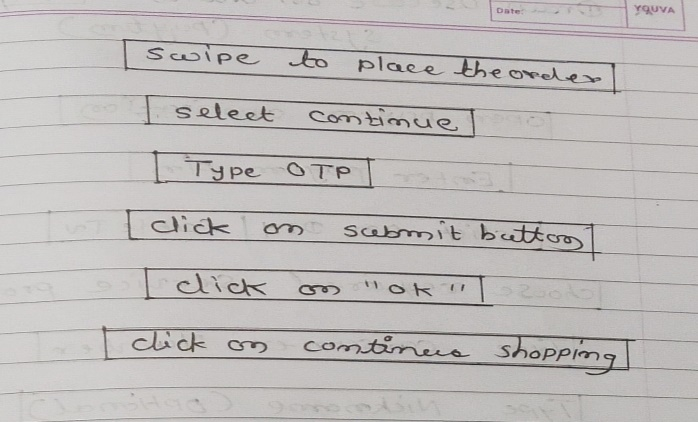 Date:
YOUVA
swipe to place the order
select continue
Type OTP
click on submit button
click on "OK"
click on continue shopping